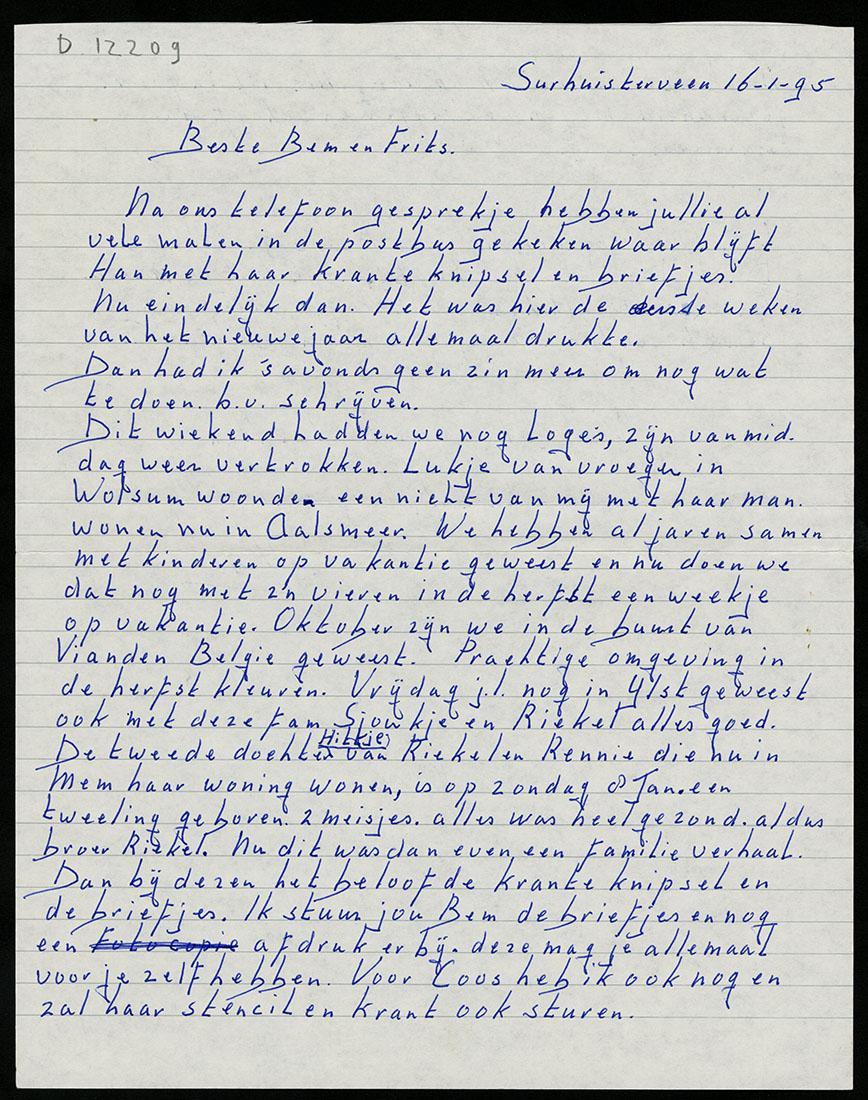 D 12209
Surhuisterveen 16-1-95
Beste Bem en Frits.
Na ons telefoon gesprekje hebben jullie al
vele malen in de postbus gekeken waar blijft
Han met haar krante knipsel en briefjes.
Nu eindelijk dan. Het was hier de eerste weken
van het nieuwe jaar allemaal drukte.
Dan had ik 's avonds geen zin meer om nog wat
te doen. b.v. schrijven.
Dit wiekend hadden we nog Logés, zijn vanmid-
dag weer vertrokken. Lukje van vroeger in
Wolsum woonde een nicht van mij met haar man.
wonen nu in Aalsmeer. We hebben al jaren samen
met kinderen op vakantie geweest en nu doen we
dat nog met z'n vieren in de herfst een weekje
op vakantie. Oktober zijn we in de buurt van
Vianden Belgie geweest. Prachtige omgeving in
de herfst kleuren. Vrijdag j.l. nog in Ylst geweest
ook met deze fam. Sjoukje en Riekel alles goed.
De tweede dochter Hiltje van Riekel en Rennie die nu in
Mem haar woning wonen, is op zondag 8 Jan. een
tweeling geboren. 2 meisjes. alles was heel gezond. aldus
broer Riekel. Nu dit was dan even een familie verhaal.
Dan bij dezen het beloofde krante knipsel en
de briefjes. Ik stuur jou Bem de briefjes en nog
een foto copie afdruk er bij. deze mag je allemaal
voor je zelf hebben. Voor Coos heb ik ook nog en
zal haar stencil en krant ook sturen.